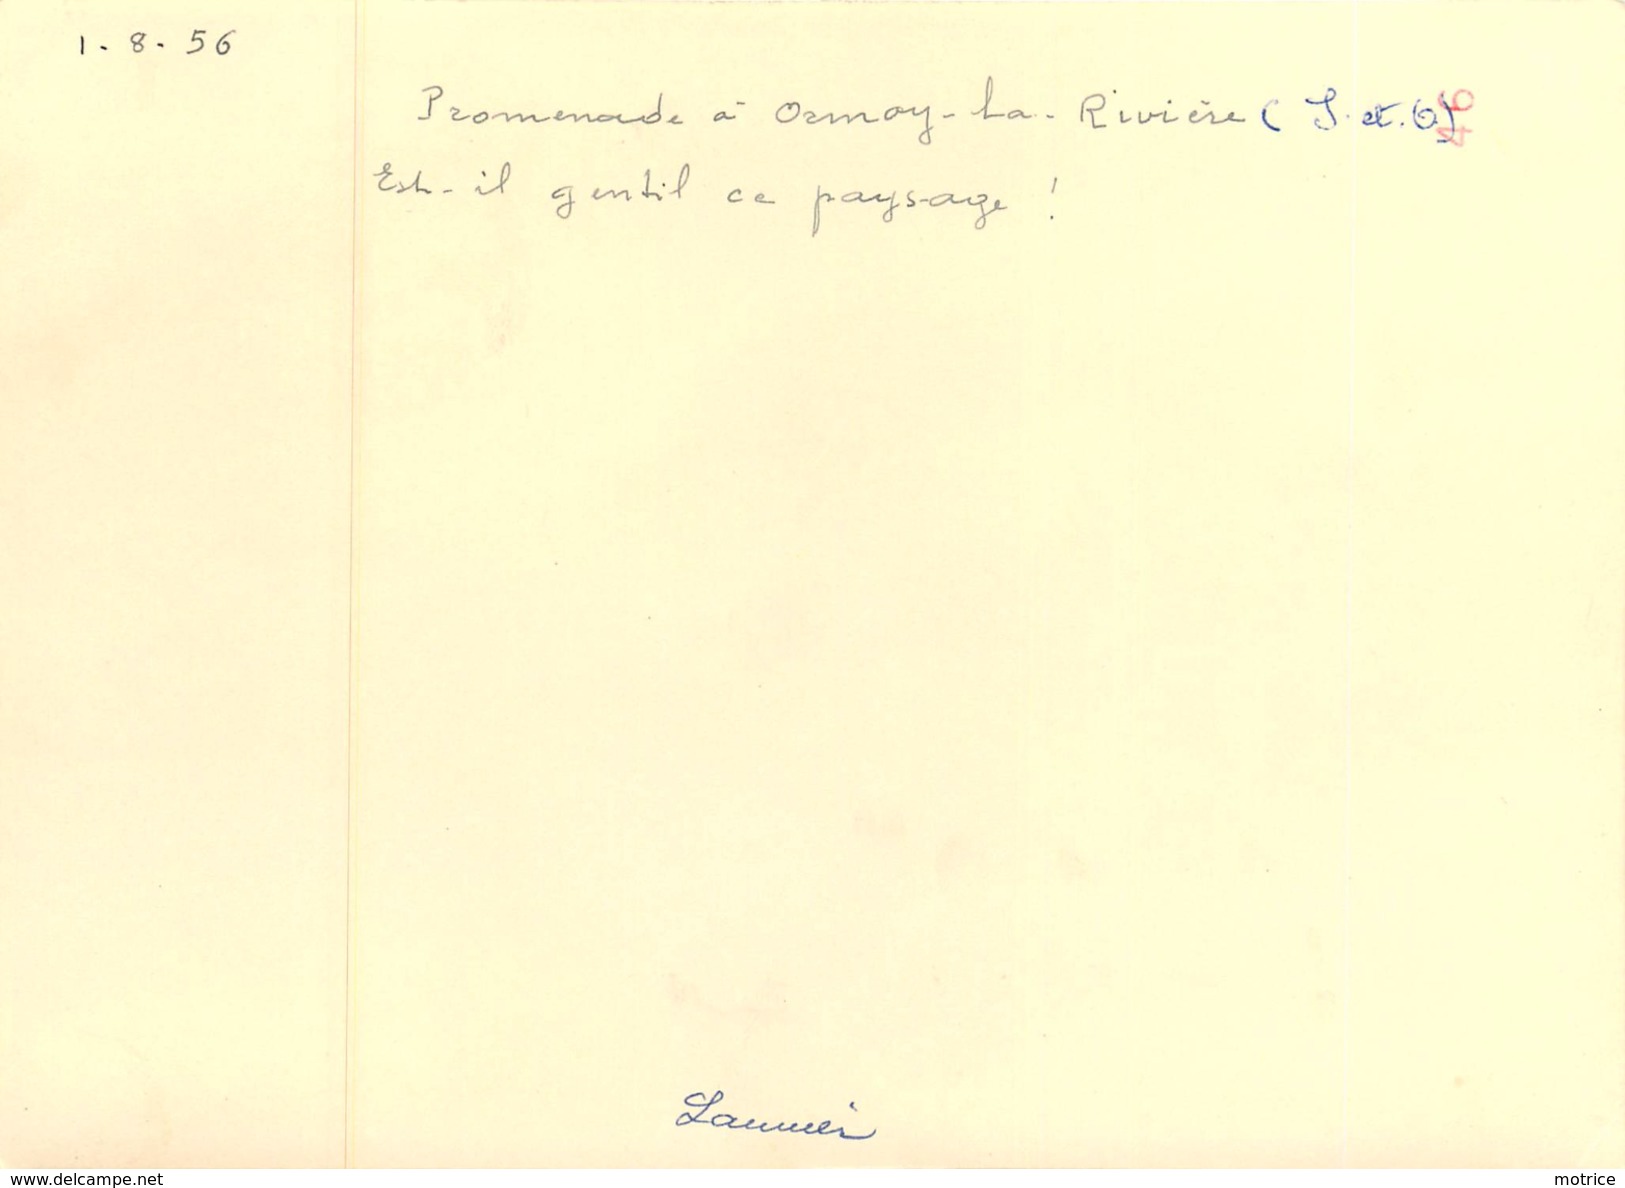 1-8-56
Promenade à Ormoy-la-Rivière (S. et. O)
46
Est-il gentil ce paysage !
www.delcampe.net
motrice